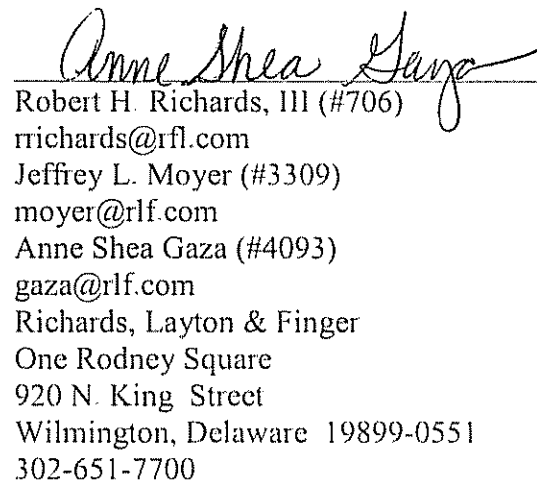 Anne Shea Gaza
Robert H. Richards, III (#706)
rrichards@rfl.com
Jeffrey L. Moyer (#3309)
moyer@rlf.com
Anne Shea Gaza (#4093)
gaza@rlf.com
Richards, Layton & Finger
One Rodney Square
920 N. King Street
Wilmington, Delaware 19899-0551
302-651-7700